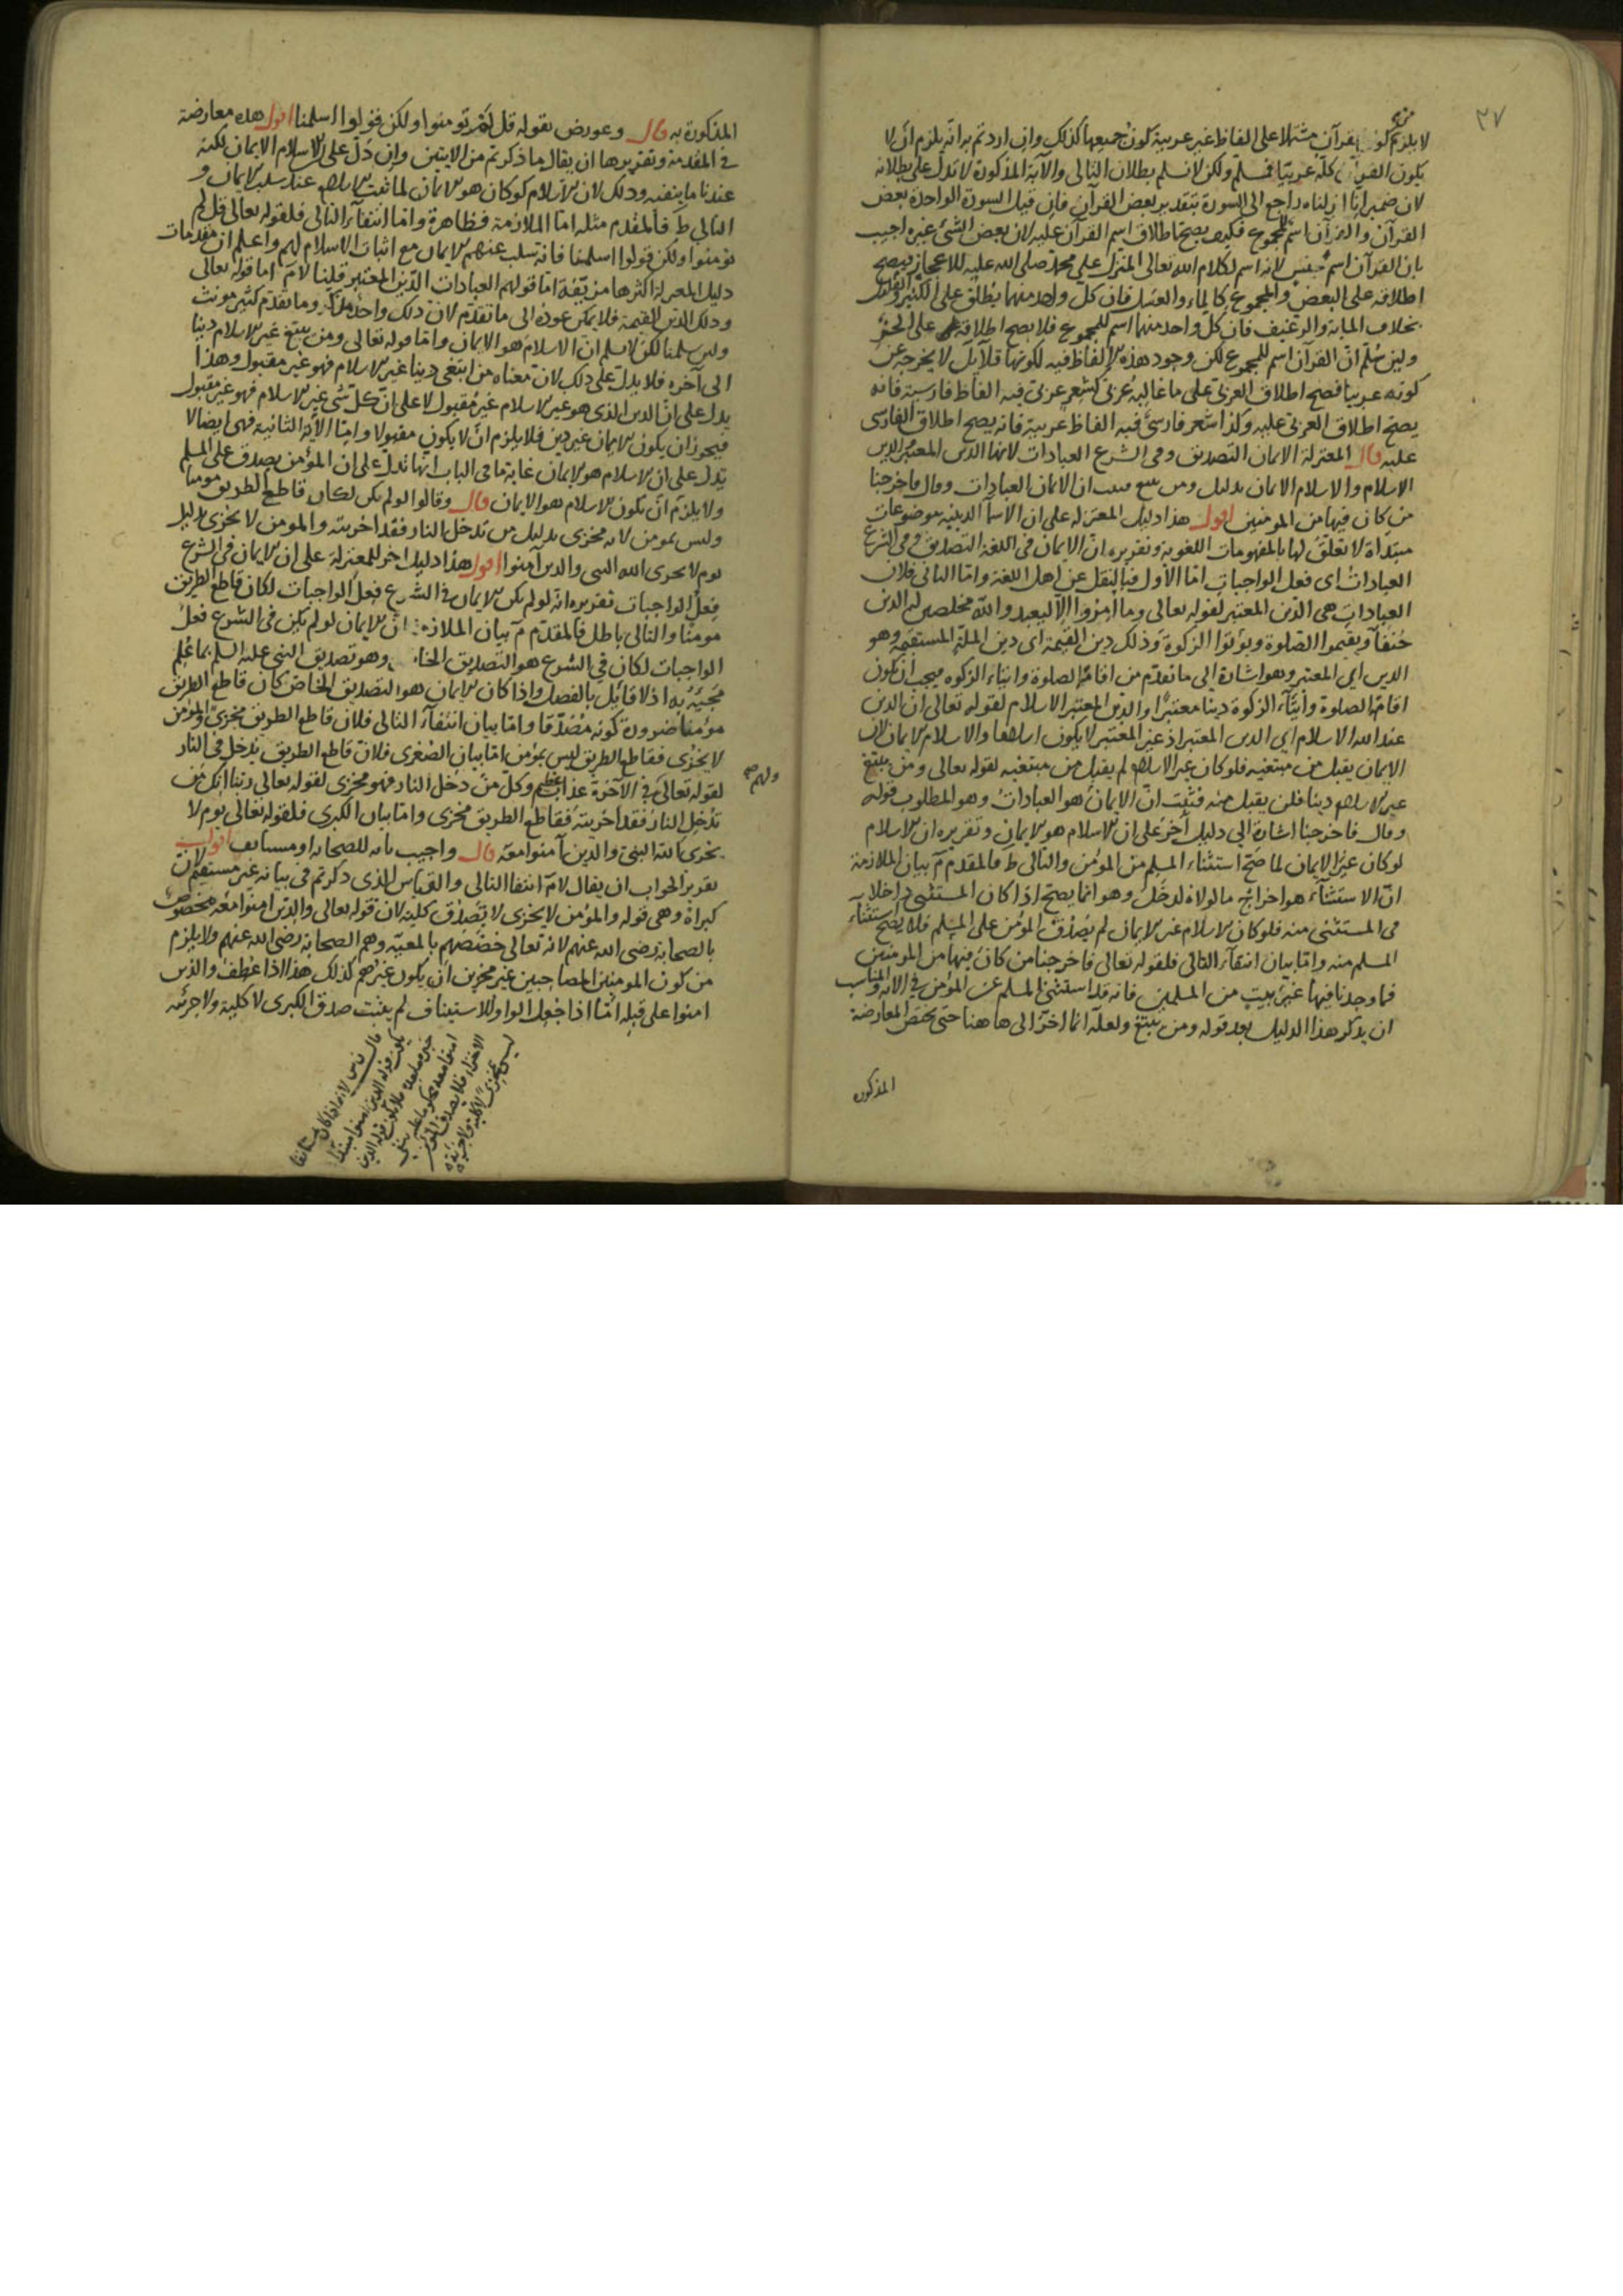 ٣٧
من
لا يلزم كون القرآن مشتملا على الفاظ غير عربية كون جميعها كذلك وان اردتم به انه يلزم ان لا
يكون القرآن كله عربيا فمسلم ولكن لا نسلم بطلان التالى والآية المذكورة لا تدل على بطلانه
لان ضمير انا انزلناه راجع الى السورة بتقدير بعض القرآن فان قيل السورة الواحدة بعض
القرآن والقرآن اسم للمجموع فكيف يصح اطلاق اسم القرآن عليه لان بعض الشئ غيره اجيب
بان القرآن اسم جنس لانه اسم لكلام الله تعالى المنزل على محمد صلى الله عليه للاعجاز فيصح
اطلاقه على البعض والمجموع كالماء والعسل فان كل واحد منهما يطلق على الكثير والقليل
بخلاف المائة والرغيف فان كل واحد منهما اسم للمجموع فلا يصح اطلاقه على الجزء
ولئن سلم ان القرآن اسم للمجموع لكن وجود هذه الالفاظ فيه لكونها قلائل لا يخرجه عن
كونه عربيا فصح اطلاق العربى على ما غالبه عربى كشعر عربى فيه الفاظ فارسية فانه
يصح اطلاق العربى عليه وكذا شعر فارسى فيه الفاظ عربية فانه يصح اطلاق الفارسى
عليه قال المعتزلة الايمان التصديق وفى الشرع العبادات لانها الدين المعتبر والدين
الاسلام والاسلام الايمان بدليل ومن يبتغ فثبت ان الايمان العبادات وقال فاخرجنا
من كان فيها من المومنين اقول هذا دليل المعتزلة على ان الاسماء الدينية موضوعات
مبتدأة لا تعلق لها بالمفهومات اللغوية وتقريره ان الايمان فى اللغة التصديق وفى الشرع
العبادات اى فعل الواجبات اما الاول فبالنقل عن اهل اللغة واما الثانى فلان
العبادات هى الدين المعتبر لقوله تعالى وما امروا الا ليعبدوا الله مخلصين له الدين
حنفاء ويقيموا الصلوة ويؤتوا الزكوة وذلك دين القيمة اى دين الملة المستقيمة وهو
الدين اى المعتبر وهو اشارة الى ما تقدم من اقامة الصلوة وايتاء الزكوة فيجب ان يكون
اقامة الصلوة وايتاء الزكوة دينا معتبرا والدين المعتبر الاسلام لقوله تعالى ان الدين
عند الله الاسلام اى الدين المعتبر اذ غير المعتبر لا يكون اسلاما والاسلام الايمان لان
الايمان يقبل من مبتغيه فلو كان غير الاسلام لم يقبل من مبتغيه لقوله تعالى ومن يبتغ
غير الاسلام دينا فلن يقبل منه فثبت ان الايمان هو العبادات وهو المطلوب قوله
وقال فاخرجنا اشارة الى دليل آخر على ان الاسلام هو الايمان وتقريره ان الاسلام
لو كان غير الايمان لما صح استثناء المسلم من المؤمن والتالى ط فالمقدم م بيان الملازمة
ان الاستثناء هو اخراج ما لولاه لدخل وهو انما يصح اذا كان المستثنى داخلا
فى المستثنى منه فلو كان الاسلام غير الايمان لم يصدق المؤمن على المسلم فلا يصح استثناء
المسلم منه واما بيان انتفاء التالى فلقوله تعالى فاخرجنا من كان فيها من المومنين
فما وجدنا فيها غير بيت من المسلمين فانه قد استثنى المسلم عن المؤمن فى الآية والمناسب
ان يذكر هذا الدليل بعد قوله ومن يبتغ ولعله انما اخر الى ها هنا حتى يختص المعارضة
المذكورة
المذكورة به قال وعورض بقوله قل لم تومنوا ولكن قولوا اسلمنا اقول هذه معارضة
فى المقدمة وتقريرها ان يقال ما ذكرتم من الايتين وان دل على ان الاسلام الايمان لكنه
عندنا ما ينفيه وذلك لان الاسلام لو كان هو الايمان لما ثبت الاسلام عند سلب الايمان و
التالى ط فالمقدم مثله اما الملازمة فظاهرة واما انتفاء التالى فلقوله تعالى قل لم
تومنوا ولكن قولوا اسلمنا فانه سلب عنهم الايمان مع اثبات الاسلام لهم واعلم ان مقدمات
دليل المعتزلة اكثرها مزيفة اما قولهم العبادات الدين المعتبر قلنا لا نم اما قوله تعالى
وذلك الدين القيمة فلا يمكن عوده الى ما تقدم لان ذلك واحد مذكر وما تقدم كثير مونث
ولئن سلمنا لكن لا نسلم ان الاسلام هو الايمان واما قوله تعالى ومن يبتغ غير الاسلام دينا
الى آخره فلا يدل على ذلك لان معناه من ابتغى دينا غير الاسلام فهو غير مقبول وهذا
يدل على ان الدين الذى هو غير الاسلام غير مقبول لا على ان كل شئ غير الاسلام فهو غير مقبول
فيجوز ان يكون الايمان غير دين فلا يلزم ان لا يكون مقبولا واما الآية الثانية فهى ايضا لا
تدل على ان الاسلام هو الايمان غاية ما فى الباب انها تدل على ان المؤمن يصدق على المسلم
ولا يلزم ان يكون الاسلام هو الايمان قال وقالوا لو لم يكن لكان قاطع الطريق مومنا
وليس بمومن لانه مخزى بدليل من تدخل النار فقد اخزيته والمومن لا يخزى بدليل
يوم لا يخزى الله النبى والذين آمنوا اقول هذا دليل اخر للمعتزلة على ان الايمان فى الشرع
فعل الواجبات تقريره انه لو لم يكن الايمان فى الشرع فعل الواجبات لكان قاطع الطريق
مومنا والتالى باطل فالمقدم م بيان الملازمة ان الايمان لو لم يكن فى الشرع فعل
الواجبات لكان فى الشرع هو التصديق الخاص وهو تصديق النبى عليه السلم بما علم
مجيئه به اذ لا قائل بالفصل واذا كان الايمان هو التصديق الخاص كان قاطع الطريق
مؤمنا ضرورة كونه مصدقا واما بيان انتفاء التالى فلان قاطع الطريق مخزى والمؤمن
لا يخزى فقاطع الطريق ليس بمؤمن اما بيان الصغرى فلان قاطع الطريق يدخل فى النار
ولهم صح
لقوله تعالى فى الآخرة عذاب عظيم وكل من دخل النار فهو مخزى لقوله تعالى ربنا انك من
تدخل النار فقد اخزيته فقاطع الطريق مخزى واما بيان الكبرى فلقوله تعالى يوم لا
يخزى الله النبى والذين آمنوا معه قال واجيب بانه للصحابة او مستانف اقول
تقرير الجواب ان يقال لا نم انتفا التالى والقياس الذى ذكرتم فى بيانه غير مستقيم لان
كبراه وهى قوله والمؤمن لا يخزى لا يصدق كلية لان قوله تعالى والذين امنوا معه مخصوص
بالصحابة رضى الله عنهم لانه تعالى خصصهم بالمعية وهم الصحابة رضى الله عنهم ولا يلزم
من كون المومنين المصاحبين غير مخزين ان يكون غيرهم كذلك هذا اذا عطف والذين
امنوا على قبله اما اذا جعل الواو للاستيناف لم يثبت صدق الكبرى لا كلية ولا جزئية